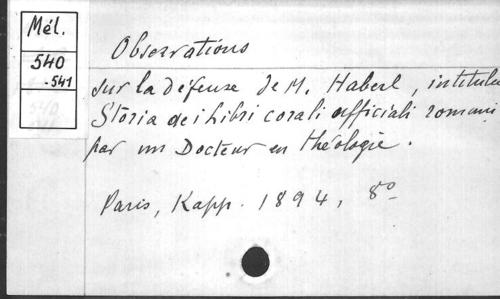 Mél.
540
-541
Observations
sur la défense de M. Haberl, intitulée
Storia dei Libri corali officiali romani
par un Docteur en théologie.
Paris, Kapp. 1894, 8º